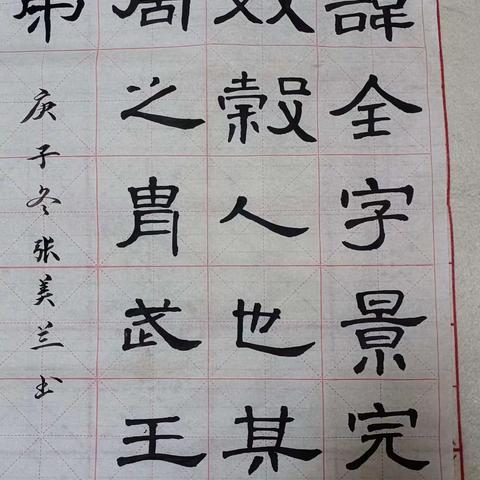 諱全字景完
效穀人也其
周之胄武王
弟
庚子冬张美兰书